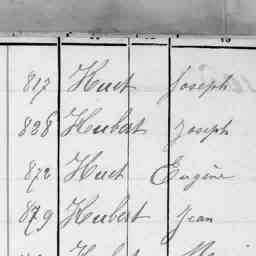 817 Huet Joseph
828 Hubert Joseph
872 Huet Eugène
879 Hubert Jean